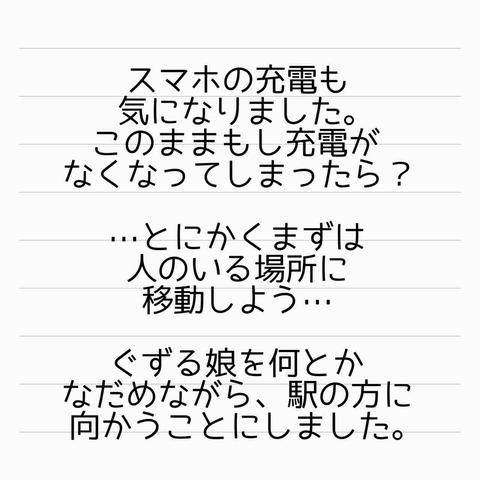 スマホの充電も
気になりました。
このままもし充電が
なくなってしまったら？
…とにかくまずは
人のいる場所に
移動しよう…
ぐずる娘を何とか
なだめながら、駅の方に
向かうことにしました。